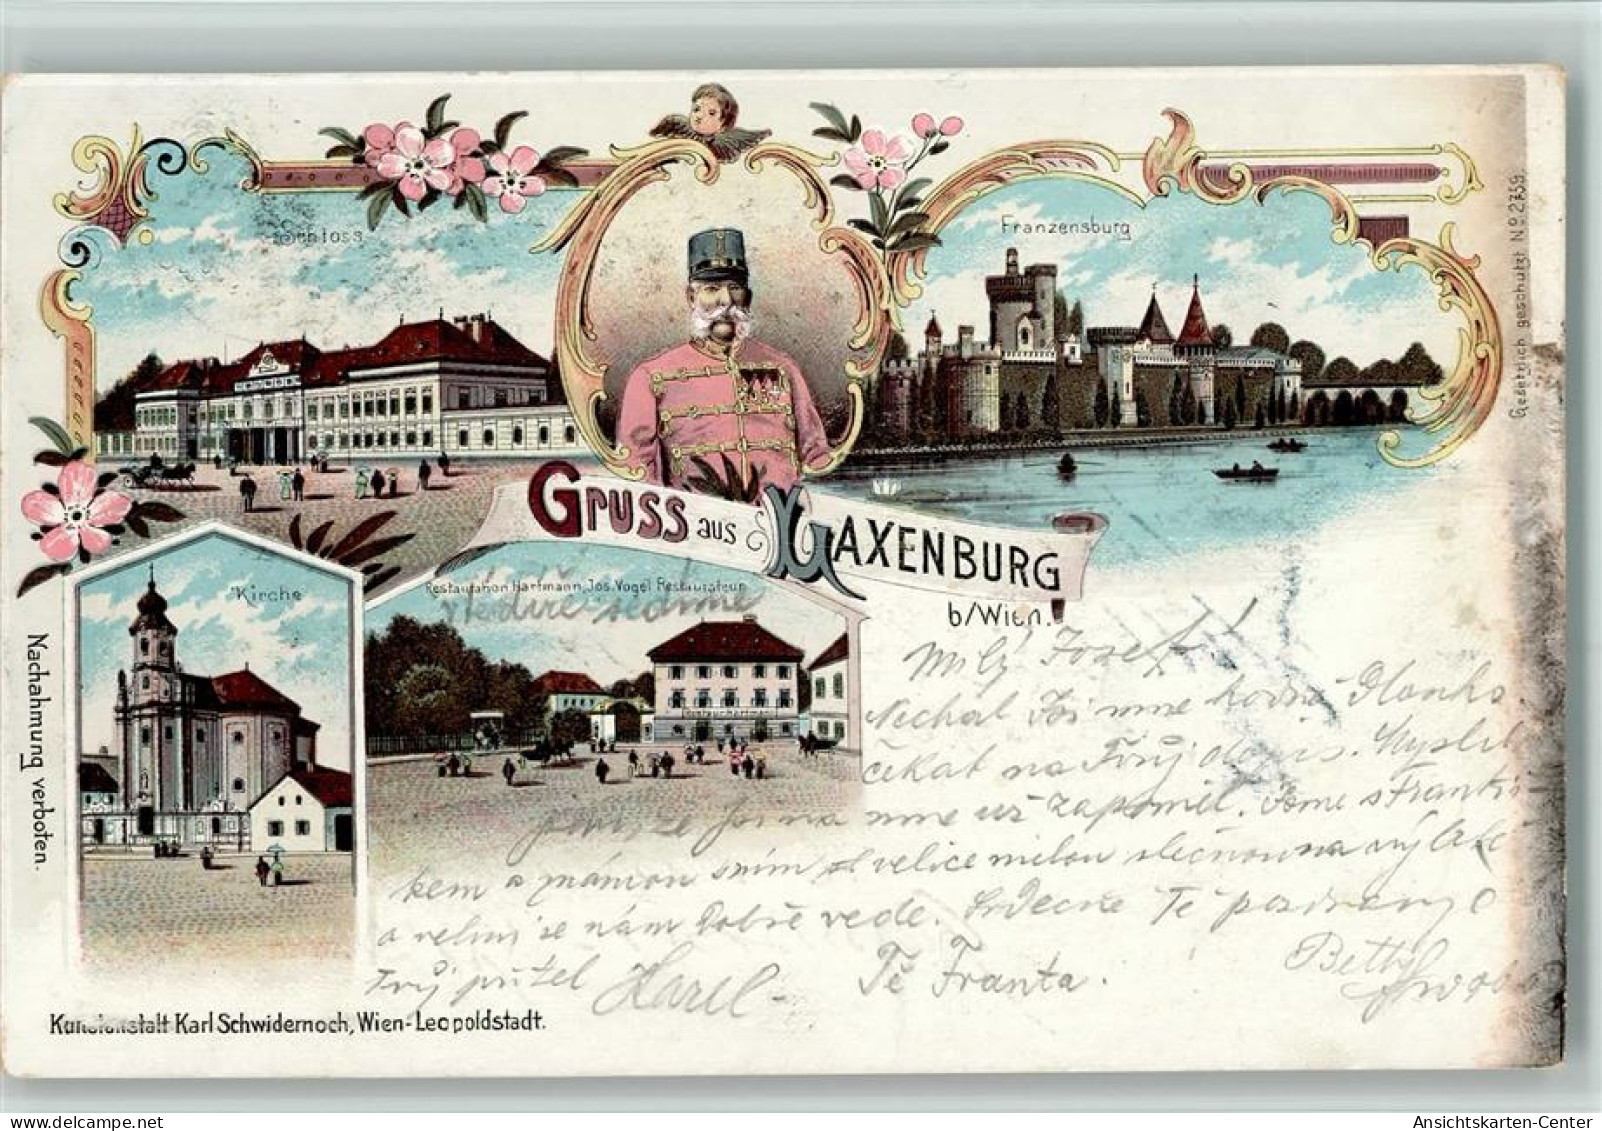 Schloss
Franzensburg
Gesetzlich geschützt No. 2759.
Gruss aus Laxenburg
b/Wien.
Kirche
Restauration Hartmann, Jos. Vogel Restaurateur
sedíme
Restauration
Nachahmung verboten.
Milý Josef!
Nechal jsi mne hodně dlouho
čekat na Tvůj dopis. Myslil
jsem, že jsi na mne už zapoměl. Jsme s Frantí-
kem a mámou sním a velice milou slečnou na výletě
a velmi se nám dobře vede. Srdečně Tě pozdravuje
Tvůj přítel Karel
Tě Franta.
Betty
Kunstanstalt Karl Schwidernoch, Wien-Leopoldstadt.
Ansichtskarten-Center